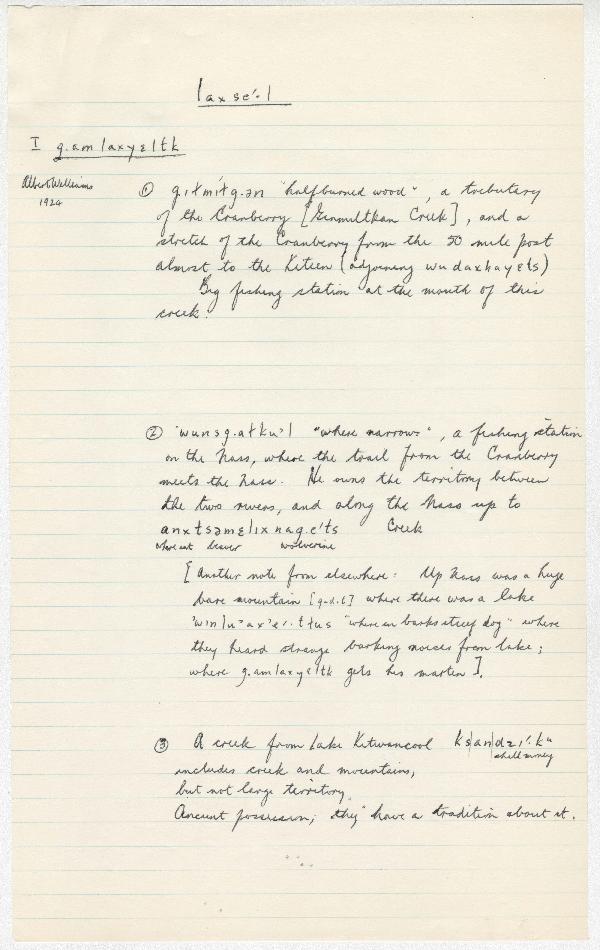 laxse'·l
I g.amlaxyɛltk
Albert Williams
1924
① g.ɪɬmɪ́tg.ən "half burned wood", a tributary
of the Cranberry [Ginmiltkan Creek], and a
stretch of the Cranberry from the 50 mile post
almost to the Kiteen (adjoining wudaxhayɛts)
Big fishing station at the mouth of this
creek.
② 'wunsg.aɬku'l "where narrows", a fishing station
on the Nass, where the trail from the Cranberry
meets the Nass. He owns the territory between
the two rivers, and along the Nass up to
anxtsəmɛlɪxnag.e'ts Creek
where eat beaver wolverine
[Another note from elsewhere: Up Nass was a huge
bare mountain where there was a lake
"where en barks steep dog" where
they heard strange barking noises from lake;
where g.amlaxyɛltk gets his marten].
③ A creek from Lake Kitwancool ks|an|dzɪ'·kʷ
shell money
includes creek and mountains,
but not large territory.
Ancient possession; "they" have a tradition about it.